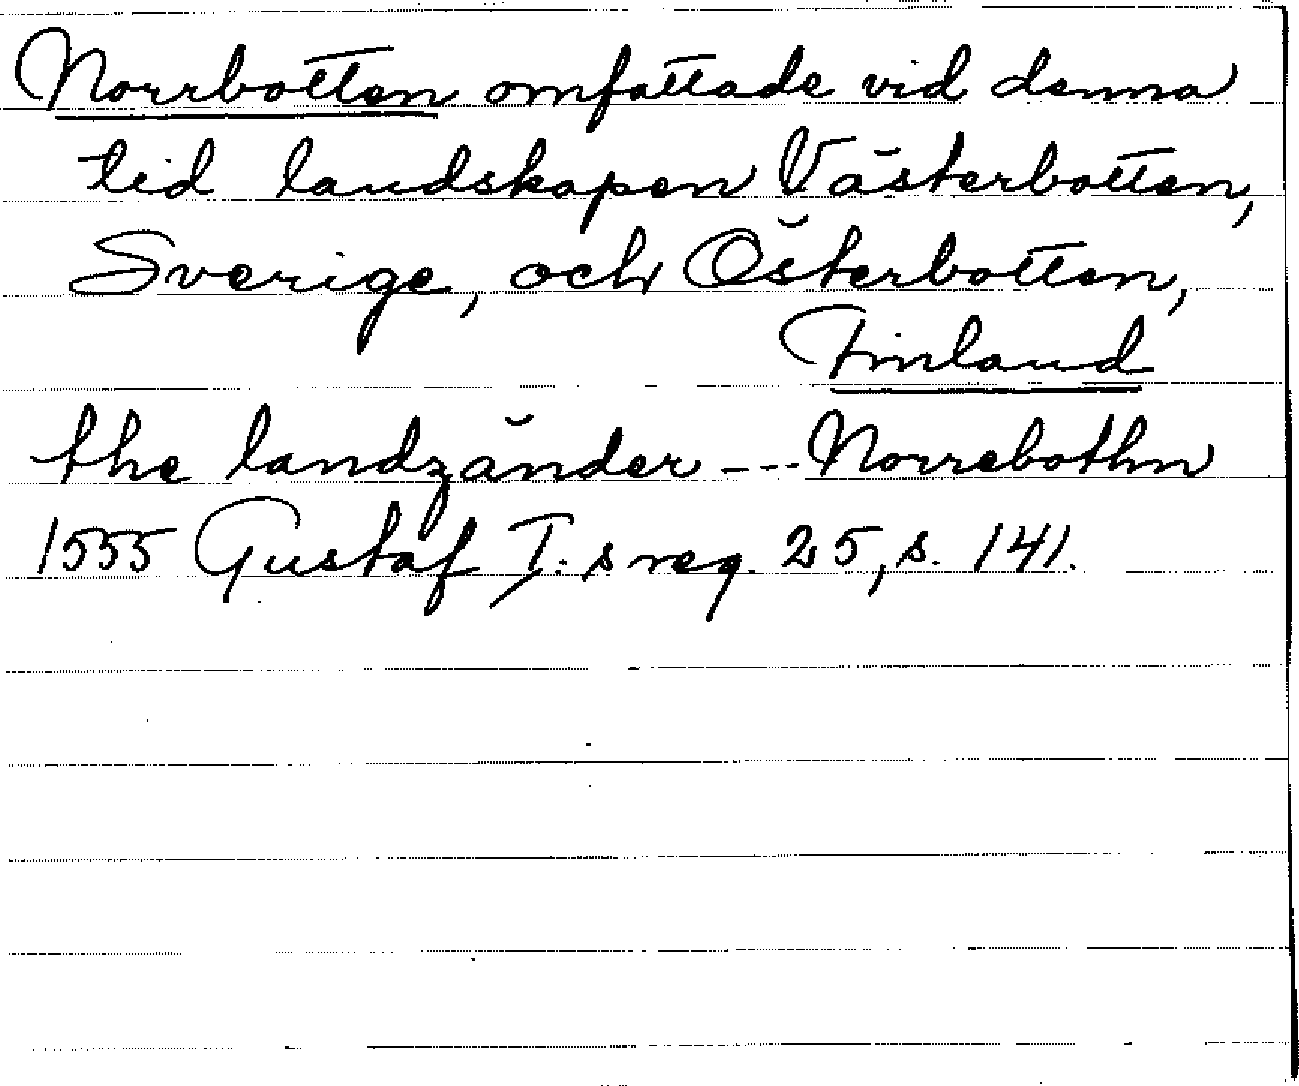 Norrbotten omfattade vid denna
tid landskapen Västerbotten,
Sverige, och Österbotten,
Finland
the landzänder --- Norrebothn
1555 Gustaf I:s reg. 25, s. 141.